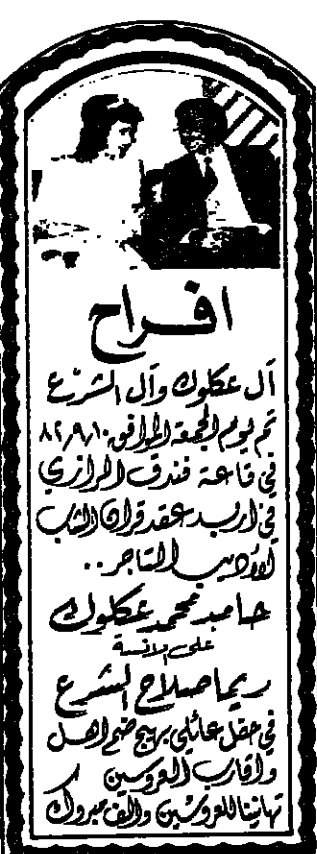 افراح
آل عكلوك وآل الشرع
تم يوم الجمعة الموافق ٨٢/٩/١٠
في قاعة فندق الرازي
في اربد عقد قران الشاب
الأديب التاجر ..
حامد محمد عكلوك
على الانسة
ريما صلاح الشرع
في حفل عائلي بهيج ضم اهل
واقارب العروسين
تهانينا للعروسين والف مبروك